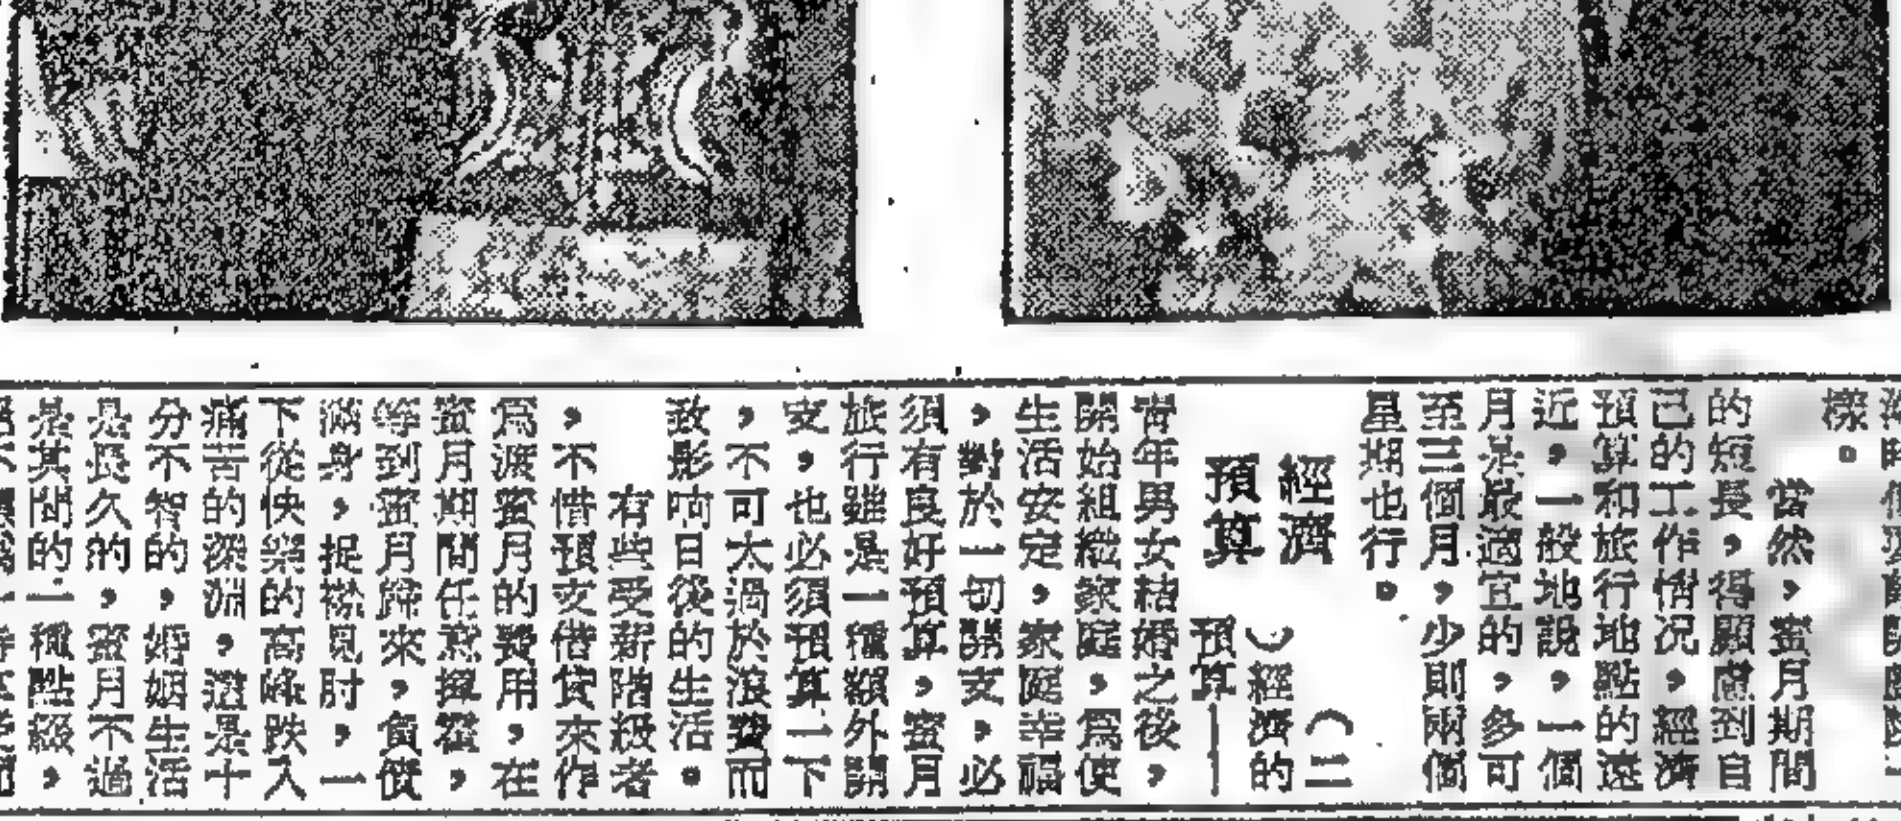 樣。
當然,蜜月期間
的短長,得顧慮到自
己的工作情况,經濟
預算和旅行地點的遠
近,一般地說,一個
月是最適宜的,多可
至三個月,少則兩個
星期也行。
經濟
預算
(二
)經濟的
預算——
青年男女結婚之後,
開始組織家庭,爲使
生活安定,家庭幸福
,對於一切開支,必
須有良好預算,蜜月
旅行雖是一種額外開
支,也必須預算一下
,不可太過於浪費而
致影响日後的生活。
有些受薪階級者
,不惜預支借貸來作
爲渡蜜月的費用,在
蜜月期間任意揮霍,
等到蜜月歸來,負債
滿身,捉襟見肘,一
下從快樂的高峰跌入
痛苦的深淵,這是十
分不智的,婚姻生活
是長久的,蜜月不過
是其間的一種點綴,